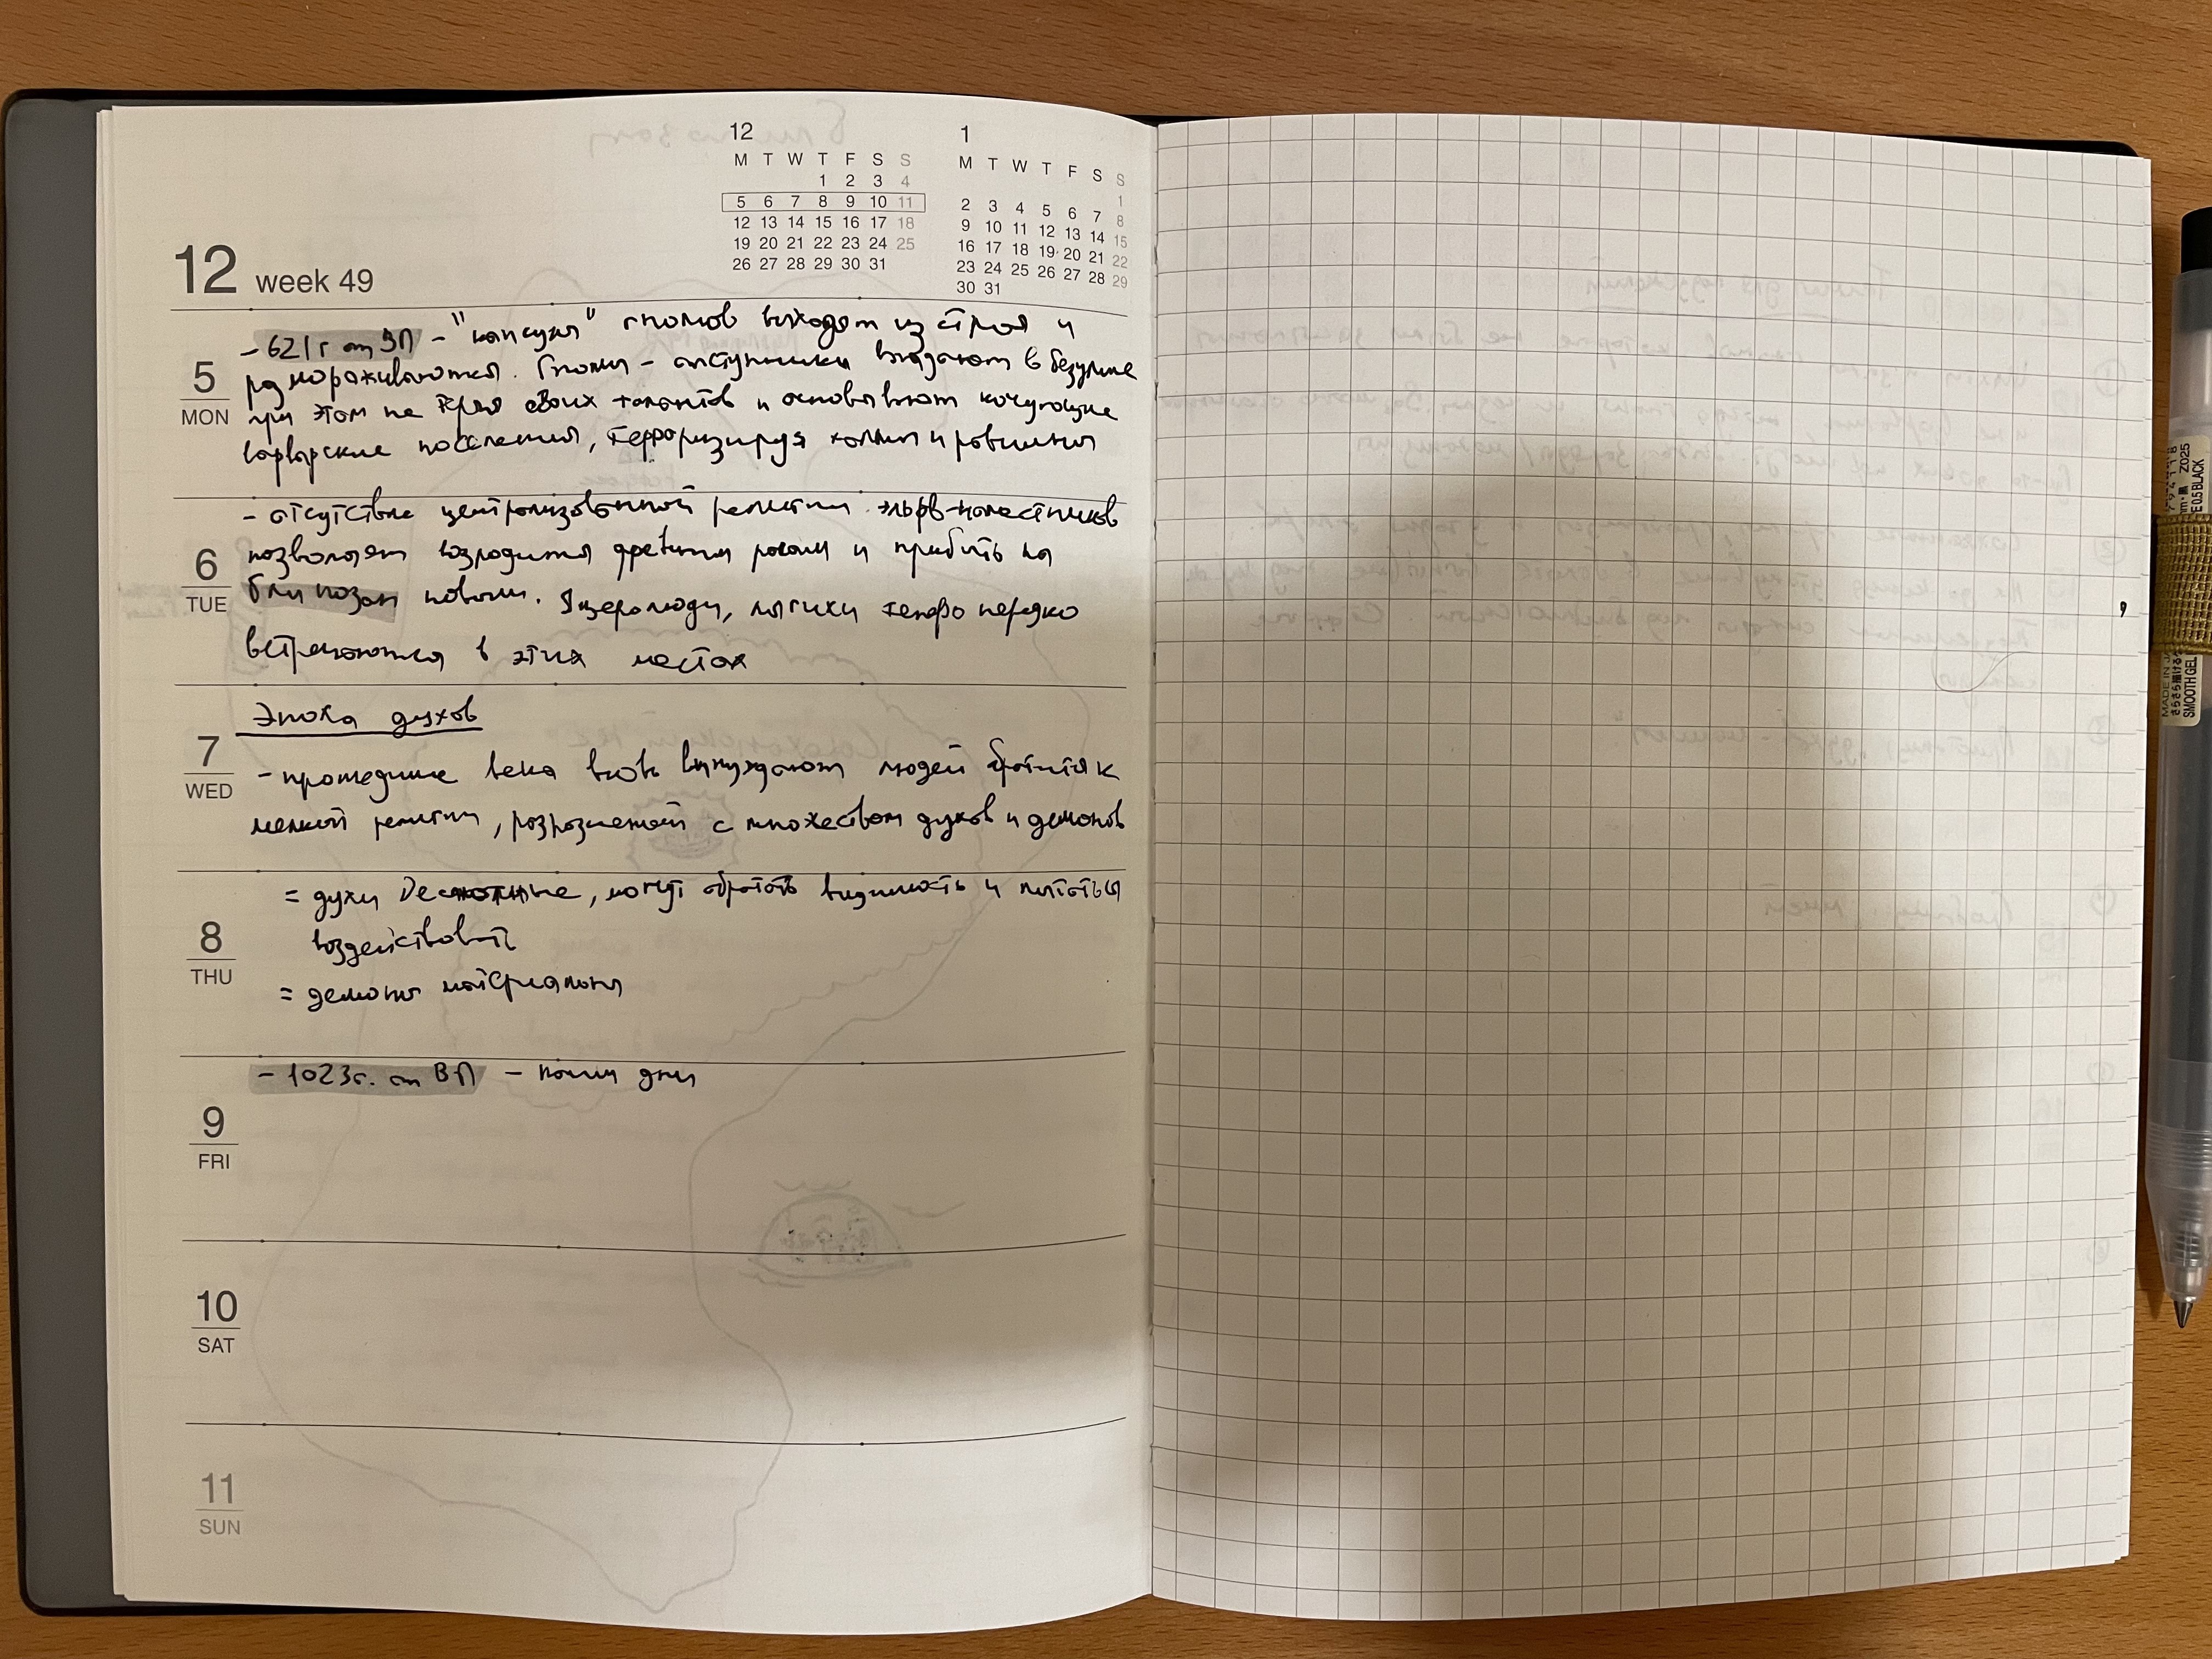 12
M T W T F S S
1 2 3 4
5 6 7 8 9 10 11
12 13 14 15 16 17 18
19 20 21 22 23 24 25
26 27 28 29 30 31
1
M T W T F S S
1
2 3 4 5 6 7 8
9 10 11 12 13 14 15
16 17 18 19 20 21 22
23 24 25 26 27 28 29
30 31
12 week 49
5
MON
- 621г от ВП - "капсулы" гномов выходят из строя и
размораживаются. Гномы - отступники впадают в безумие
при этом не теряя своих талантов и основывают кочующие
варварские поселения, терроризируя холмы и равнины
6
TUE
- отсутствие централизованной религии эльфов-наместников
позволяет возродится древним расам и прибыть на
новым. Ящеролюди, лягухи теперь нередко
встречаются в этих местах
7
WED
Эпоха духов
- прошедшие века вновь вынуждают людей обратится к
мелкой религии, разрозненной с множеством духов и демонов
8
THU
= духи бесплотные, могут обретать видимость и пытаться
воздействовать
= демоны материальны
9
FRI
- 1023г. от ВП - наши дни
10
SAT
11
SUN
SMOOTH GEL
0.5 BLACK